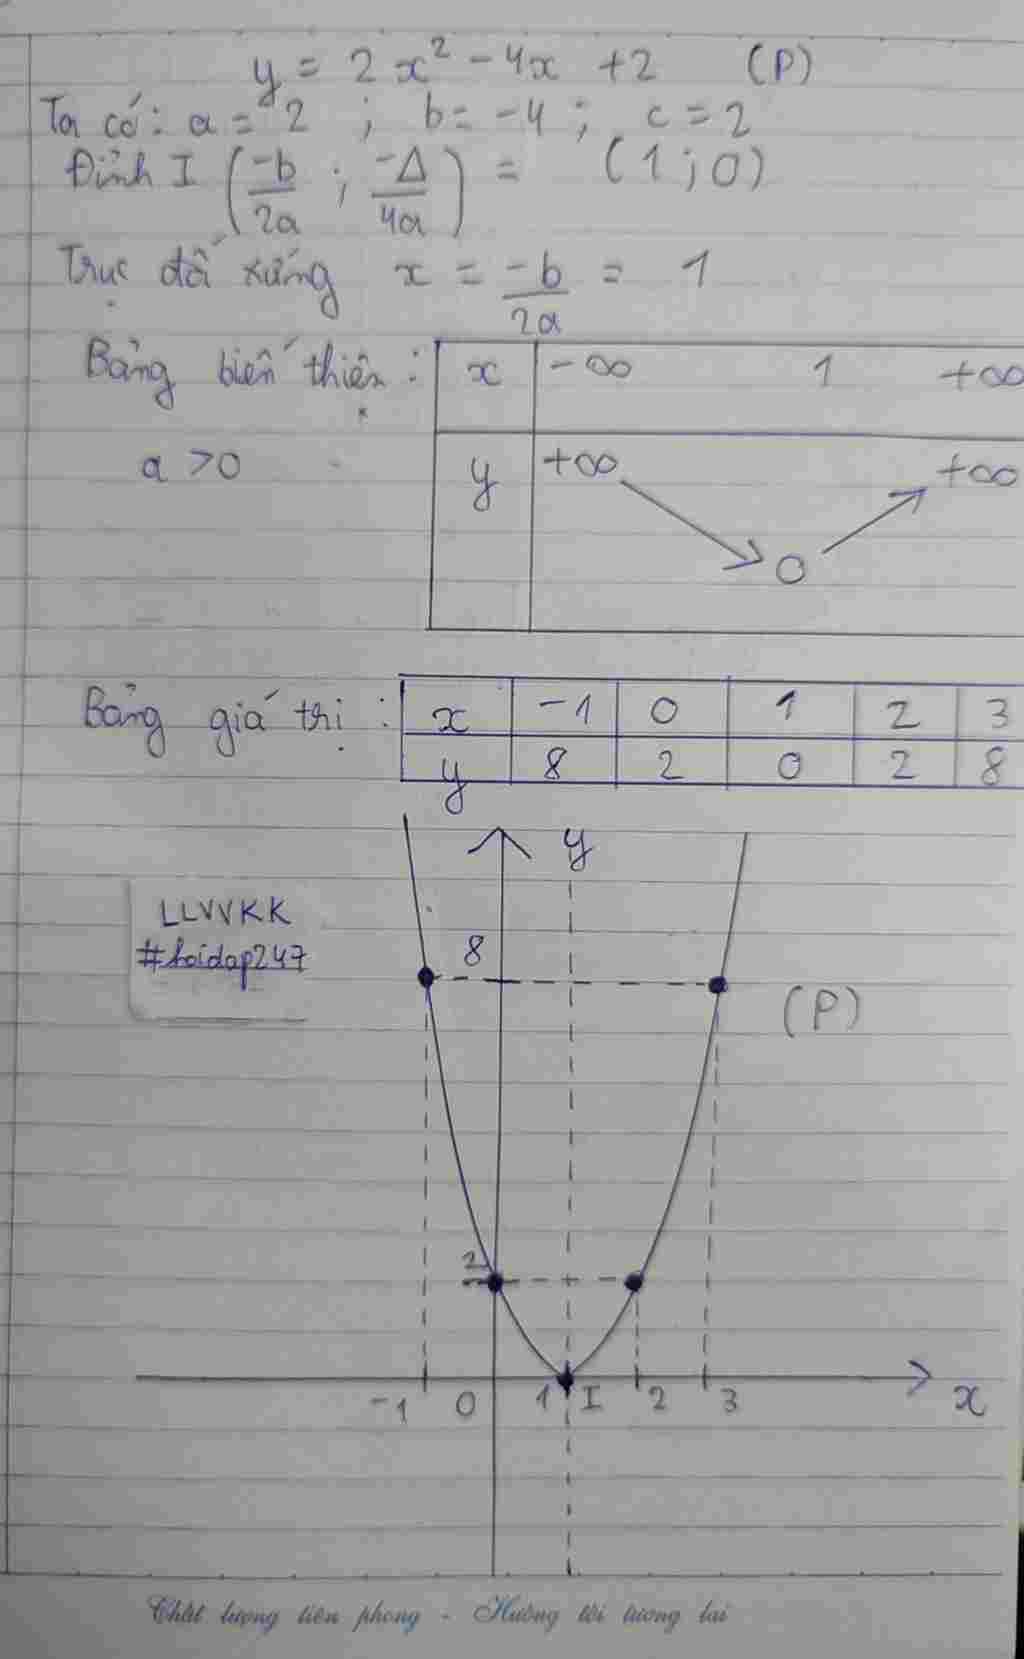 y = 2x² - 4x + 2 (P)
Ta có: a = 2 ; b = -4 ; c = 2
Đỉnh I (-b/2a ; -Δ/4a) = (1 ; 0)
Trục đối xứng x = -b/2a = 1
Bảng biến thiên : x -∞ 1 +∞
a > 0 y +∞ 0 +∞
Bảng giá trị : x -1 0 1 2 3
y 8 2 0 2 8
y
LLVVKK
#hoidap247
8
(P)
2
-1 0 1 I 2 3 x
Chất lượng tiên phong - Hướng tới tương lai